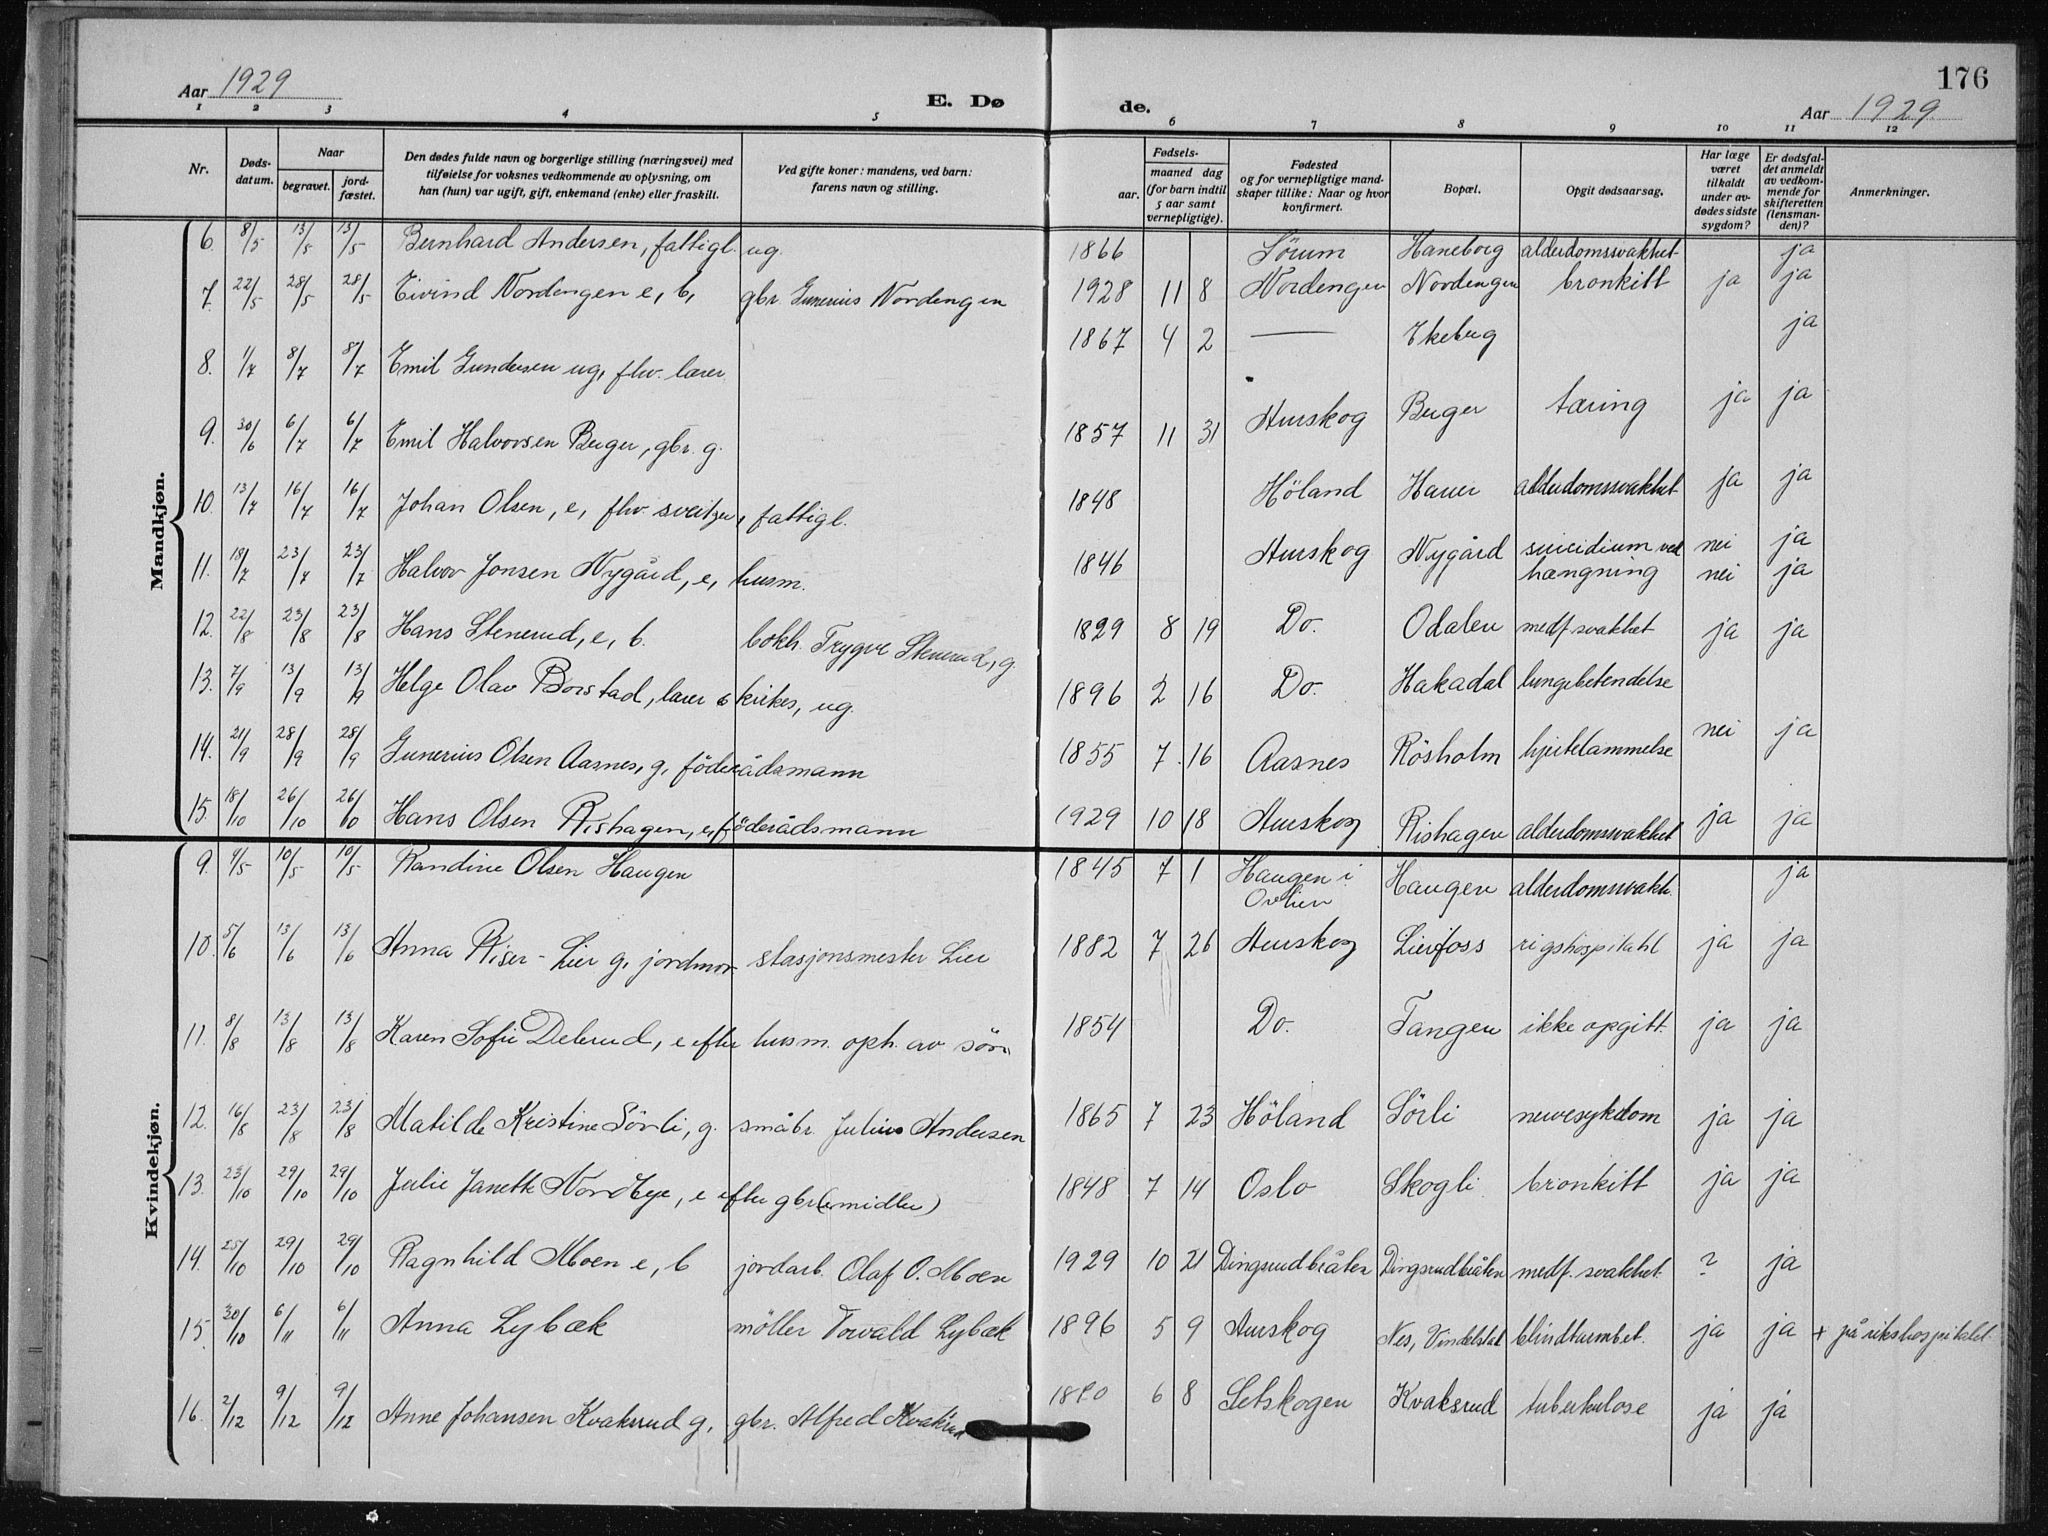 176
Aar 1929
E. Dø
de.
Aar 1929
1 2 3 4 5 6 7 8 9 10 11 12
Nr.
Døds-
datum.
Naar
begravet.
jord-
fæstet.
Den dødes fulde navn og borgerlige stilling (næringsvei) med
tilføielse for voksnes vedkommende av oplysning, om
han (hun) var ugift, gift, enkemand (enke) eller fraskilt.
Ved gifte koner: mandens, ved barn:
farens navn og stilling.
Fødsels-
aar.
maaned dag
(for barn indtil
5 aar samt
vernepligtige).
Fødested
og for vernepligtige mand-
skaper tillike: Naar og hvor
konfirmert.
Bopæl.
Opgit dødsaarsag.
Har læge
været
tilkaldt
under av-
dødes sidste
sygdom?
Er dødsfal-
det anmeldt
av vedkom-
mende for
skifteretten
(lensman-
den)?
Anmerkninger.
Mandkjøn.
6. 8/5 13/5 13/5 Bernhard Andersen, fattigl. ug. 1866 Sörum Haneborg alderdomssvakhet ja
7. 22/5 28/5 28/5 Eivind Nordengen e, b, gbr. Gunerius Nordengen 1928 11 8 Nordengen Nordengen bronkitt ja ja
8. 1/7 8/7 8/7 Emil Gundersen ug, fhv. lærer 1867 4 2 — Ekeberg ja
9. 30/6 6/7 6/7 Emil Halvorsen Berger, gbr. g. 1857 11 31 Aurskog Berger tæring ja ja
10. 13/7 16/7 16/7 Johan Olsen, e, fhv sveitzer, fattigl. 1848 Höland Hauer alderdomssvakhet ja ja
11. 18/7 23/7 23/7 Halvor Jonsen Nygård, e, husm. 1846 Aurskog Nygård suicidium ved nei ja
hængning nei ja
12. 22/8 23/8 23/8 Hans Stenerud, e, b. bokh. Trygve Stenerud, g. 1829 8 19 Do. Odalen medf. svakhet ja ja
13. 7/9 13/9 13/9 Helge Olav Borstad, lærer & kirkes, ug. 1896 2 16 Do. Hakadal lungebetendelse
14. 21/9 28/9 28/9 Gunerius Olsen Aasnes, g, föderådsmann 1855 7 16 Aasnes Rösholm hjertelammelse nei ja
15. 18/10 26/10 26/10 Hans Olsen Rishagen, e, föderådsmann 1929 10 18 Aurskog Rishagen alderdomssvakhet ja ja
Kvindekjøn.
9. 4/5 10/5 10/5 Randine Olsen Haugen 1845 7 1 Haugen i Haugen alderdomssvakh. ja
10. 5/6 13/6 13/6 Anna Riser - Lier g, jordmor stasjonsmester Lier 1882 7 26 Aurskog Lierfoss rigshospitahl ja ja
11. 8/8 13/8 13/8 Karen Sofie Delerud, e efter husm. oph. av sön 1854 Do. Tangen ikke opgitt. ja ja
12. 16/8 23/8 23/8 Matilde Kristine Sörli, g. småbr. Julius Andersen 1865 7 23 Höland Sörli nervesykdom ja ja
13. 23/10 29/10 29/10 Julie Janette Nordbye, e efter gbr. (emidler) 1848 7 14 Oslo Skogli bronkitt ja ja
14. 25/10 29/10 29/10 Ragnhild Moen e, b jordarb. Olaf O. Moen 1929 10 21 Dingsrudbråten Dingsrudbråten medf. svakhet. ? ja
15. 30/10 6/11 6/11 Anna Lybæk möller Torvald Lybæk 1896 5 9 Aurskog Nes, Vindelstad blindtarmbet. ja ja + på rikshospitalet.
16. 2/12 9/12 9/12 Anne Johansen Kvaksrud g, gbr. Alfred Kvaksrud 6 8 Setskogen Kvaksrud tuberkulose ja ja